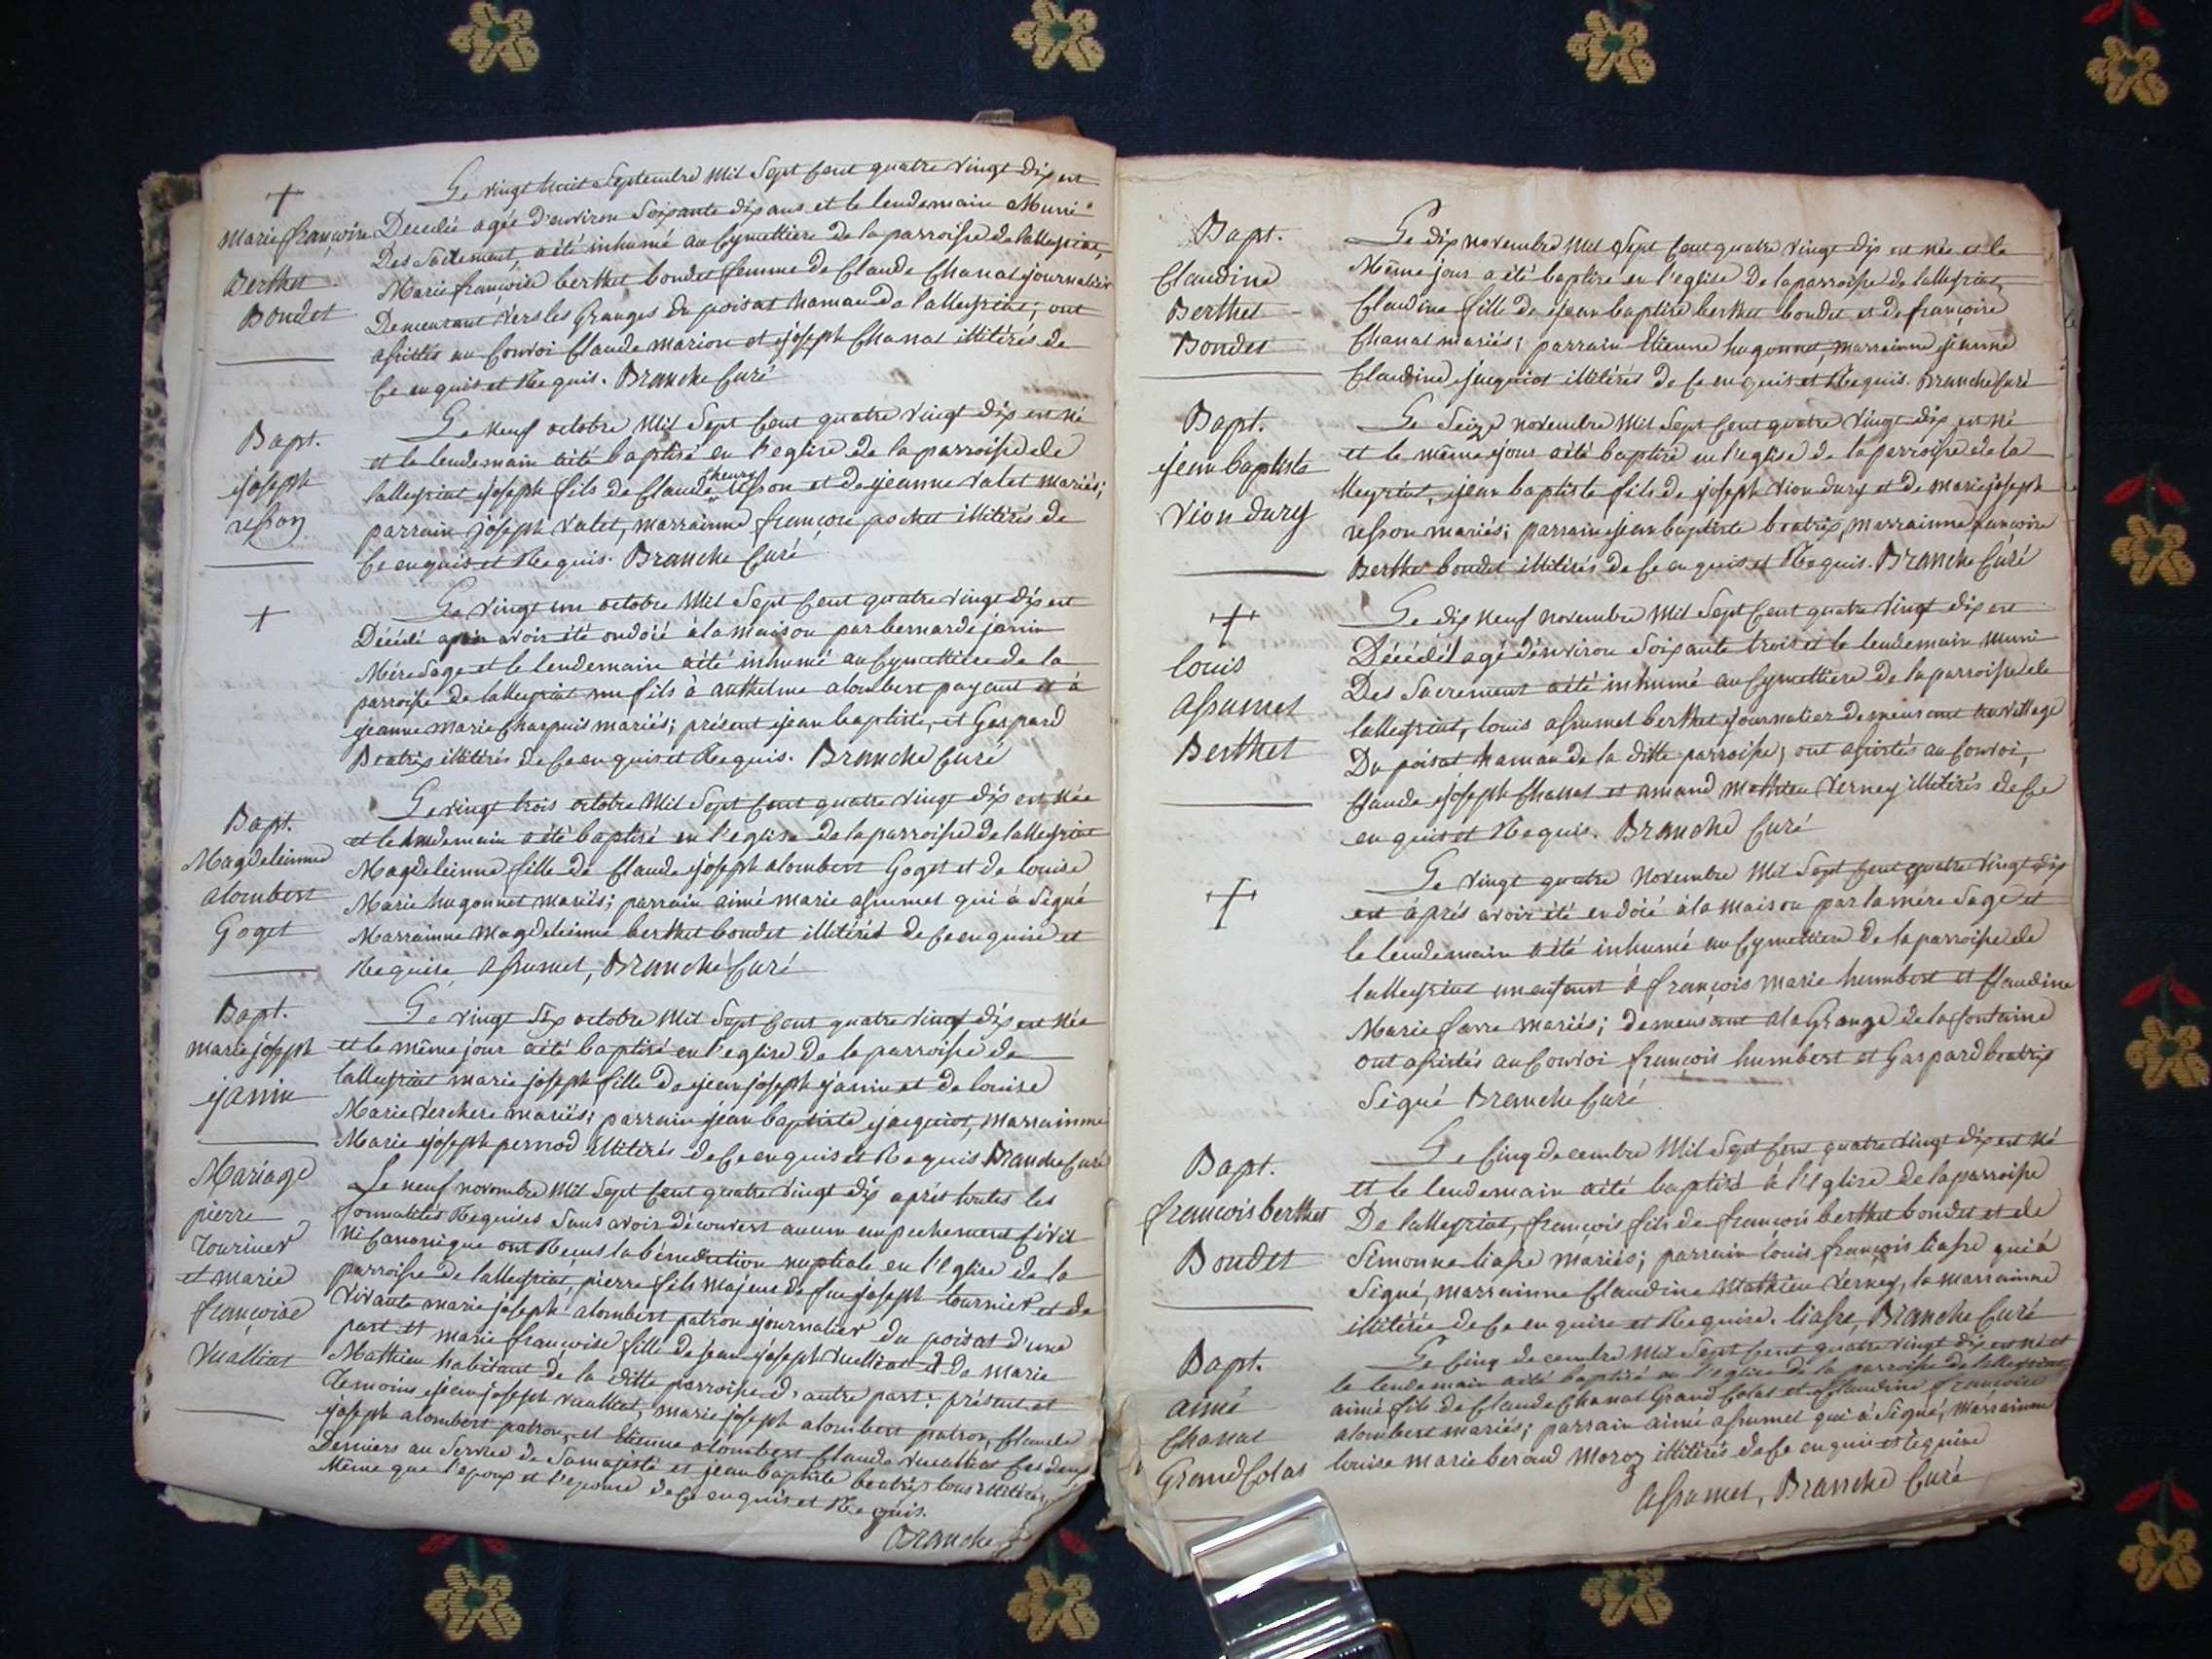 +
marie françoise
Berthet
Bondet
Le vingt huit Septembre mil Sept Cent quatre vingt dix est
Decedée agée d'environ Soixante dix ans et le lendemain Munie
Des Sacrement, a été inhumé au Cymettiere de la parroisse de lalleyriat,
Marie françoise berthet bondet femme de Claude Chanat journalier
Demeurant vers les Granges du poisat hamau de lalleyriat; ont
assistés au Convoi Claude marion et joseph Chanat illitérés de
Ce enquis et Requis. Branche Curé
Bapt.
joseph
resson
Le neuf octobre Mil Sept Cent quatre vingt dix est né
et le lendemain a été baptisé en l'eglise de la parroisse de
lalleyriat joseph fils de Claude henry resson et de jeanne valet mariés;
parrain joseph valet, marrainne françoise pochet illitérés de
Ce enquis et Requis. Branche Curé
+
Le vingt un octobre Mil Sept Cent quatre vingt dix est
Décédé après avoir été ondoié à la maison par bernarde janin
Mére Sage et le lendemain a été inhumé au Cymettiere de la
parroisse de lalleyriat un fils à anthelme alombert payant et à
jeanne marie Charpuis mariés; présent jean baptiste, et Gaspard
Beatrix illitérés de Ce enquis et Requis. Branche Curé
Bapt.
Magdeleinne
alombert
Goget
Le vingt trois octobre Mil Sept Cent quatre vingt dix est née
et le lendemain a été baptisé en l'eglise de la parroisse de lalleyriat
Magdeleinne fille de Claude joseph alombert Goget et de louise
Marie hugonnet mariés; parrain aimé marie assumet qui à Signé
Marrainne Magdeleinne berthet bondet illitérés de Ce enquise et
Requise, assumet, Branche Curé
Bapt.
marie joseph
janin
Le vingt Six octobre Mil Sept Cent quatre vingt dix est née
et le même jour a été baptisé en l'eglise de la parroisse de
lalleyriat marie joseph fille de jean joseph janin et de louise
Marie verchere mariés; parrain jean baptiste jacquiot, marrainne
Marie joseph pernod illitérés de Ce enquis et Requis Branche Curé
Mariage
pierre
Tournier
et marie
françoise
Vualliat
Le neuf novembre Mil Sept Cent quatre vingt dix aprés toutes les
formalités Requises Sans avoir découvert aucun empechement Civil
Ni Canonique ont Reçus la bénédiction nuptiale en l'Eglise de la
parroisse de lalleyriat, pierre fils majeur de feu joseph tournier et de
vivante marie joseph alombert patron journalier du poisat d'une
part et marie françoise fille de jean joseph vualliat et de marie
Mathieu habitant de la ditte parroisse d'autre part; présent et
temoins jean joseph vualliat, marie joseph alombert patron, Claude
joseph alombert patron, et Etienne alombert Claude vualliat Ces deux
Derniers au Service de Samajesté et jean baptiste beatrix tous illitérés
Même que l'epoux et l'epouse de Ce enquis et Requis.
Branche
Bapt.
Claudine
Berthet
Bondet
Le dix novembre Mil Sept Cent quatre vingt dix est née et le
Même jour a été baptisé en l'eglise de la parroisse de lalleyriat,
Claudine fille de jean baptiste berthet bondet et de françoise
Chanat mariés; parrain Etienne hugonnet, marrainne jeanne
Claudine jacquiot illitérés de Ce enquis et Requis. Branche Curé
Bapt.
jean baptiste
Vion dury
Le Seize novembre Mil Sept Cent quatre vingt dix est né
et le même jour a été baptisé en l'eglise de la parroisse de la
lleyriat, jean baptiste fils de joseph vion dury et de marie joseph
resson mariés; parrain jean baptiste beatrix, marrainne françoise
Berthet bondet illitérés de Ce enquis et Requis. Branche Curé
+
louis
assumet
Berthet
Le dix neuf novembre Mil Sept Cent quatre vingt dix est
Décédé agé d'environ Soixante trois et le lendemain Muni
Des Sacrement a été inhumé au Cymettiere de la parroisse de
lalleyriat, louis assumet berthet journalier demeurant au village
Du poisat hamau de la ditte parroisse; ont assistés au Convoi,
Claude joseph Chanat et amand mathieu verney illitérés de Ce
enquis et Requis. Branche Curé
+
Le vingt quatre Novembre Mil Sept Cent quatre vingt dix
est après avoir été endoié à la maison par la mére Sage et
le lendemain a été inhumé au Cymettiere de la parroisse de
lalleyriat un enfant à françois marie humbert et Claudine
Marie favre mariés; demeurant a la Grange de la fontaine
ont assistés au Convoi françois humbert et Gaspard beatrix
Signé Branche Curé
Bapt.
françois berthet
Bondet
Le Cinq decembre Mil Sept Cent quatre vingt dix est né
et le lendemain a été baptisé à l'Eglise de la parroisse
De lalleyriat, françois fils de françois berthet bondet et de
Simonne liasse mariés; parrain louis françois liasse qui à
Signé, marrainne Claudine mathieu verney, la marrainne
illitérée de Ce enquise et Requise. liasse, Branche Curé
Bapt.
aimé
Chanat
Grand Colas
Le Cinq decembre Mil Sept Cent quatre vingt dix est né et
le lendemain a été baptisé en l'eglise de la parroisse de lalleyriat
aimé fils de Claude Chanat Grand Colas et Claudine françoise
alombert mariés; parrain aimé assumet qui à Signé, marrainne
louise marie beroud Moroz illitérés de Ce enquis et requise
assumet, Branche Curé